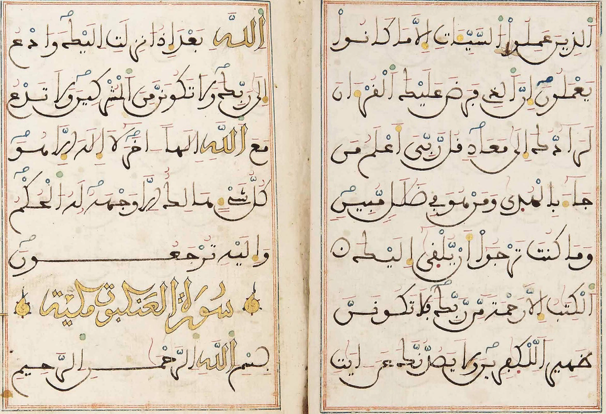 الذين عملوا السيات الا ما كانوا
يعملون ان الذي فرض عليك القران
لرادك الى معاد قل ربي اعلم من
جاء بالهدى ومن هو في ضلل مبين
وما كنت ترجوا ان يلقى اليك
الكتب الا رحمة من ربك فلا تكونن
ظهيرا للكفرين ولا يصدنك عن ايت
الله بعد اذ انزلت اليك وادع
الى ربك ولا تكونن من المشركين ولا تدع
مع الله الها اخر لا اله الا هو
كل شيء هالك الا وجهه له الحكم
واليه ترجعون
سورة العنكبوت مكية
بسم الله الرحمن الرحيم